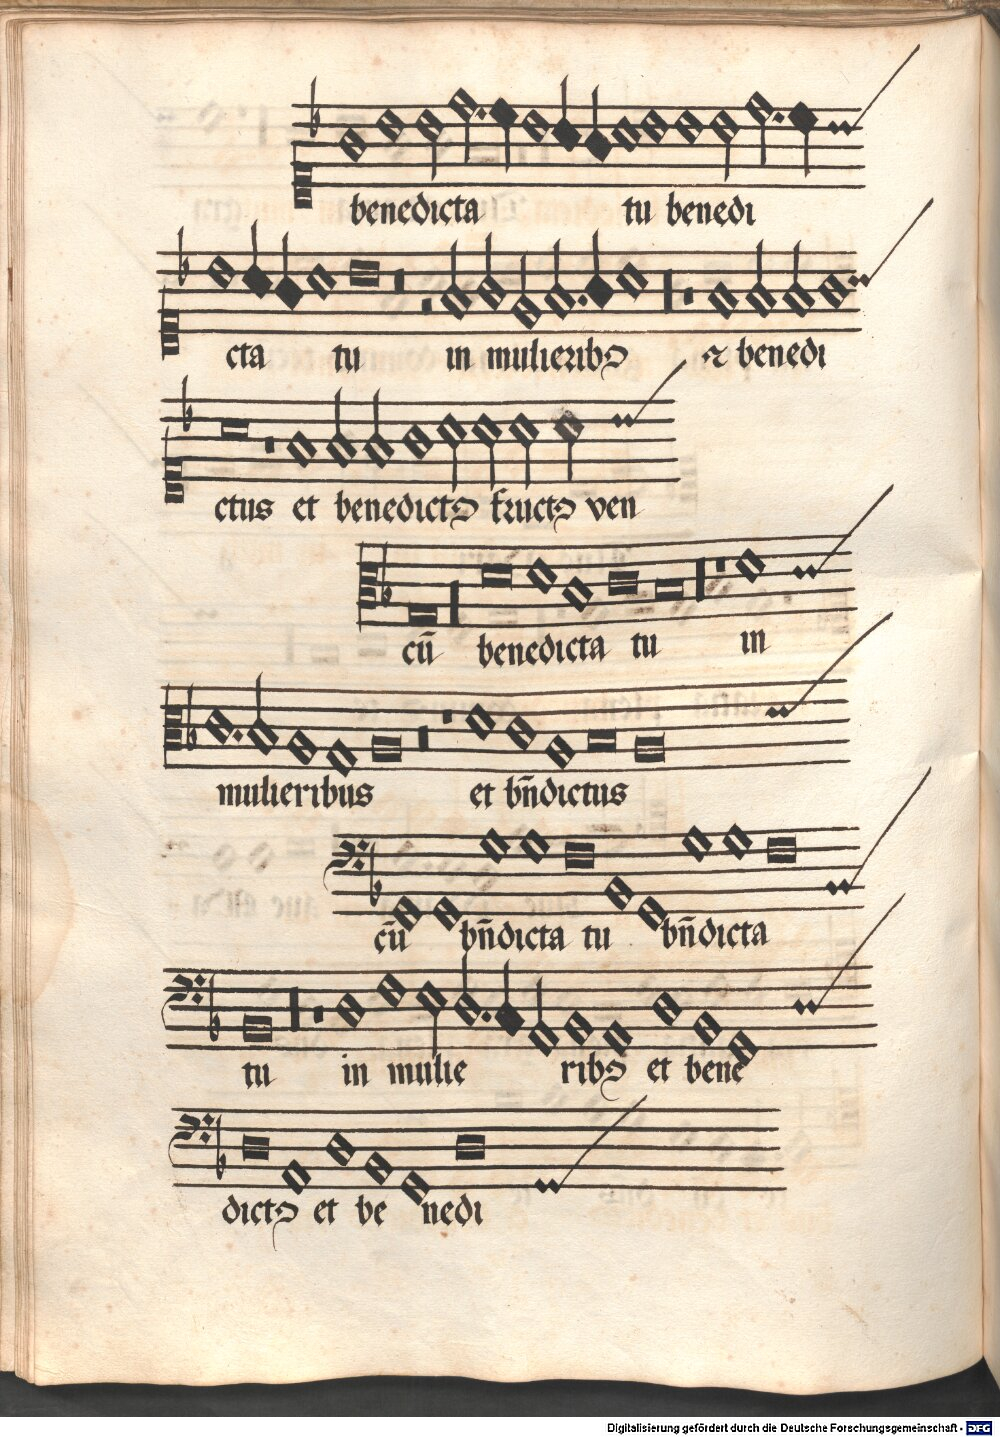 benedicta tu benedi
cta tu in mulieribꝰ ⁊ benedi
ctus et benedictꝰ fructꝰ ven
cū benedicta tu in
mulieribus et bn̄dictus
cū bn̄dicta tu bn̄dicta
tu in mulie ribꝰ et bene
dictꝰ et be nedi
Digitalisierung gefördert durch die Deutsche Forschungsgemeinschaft - DFG